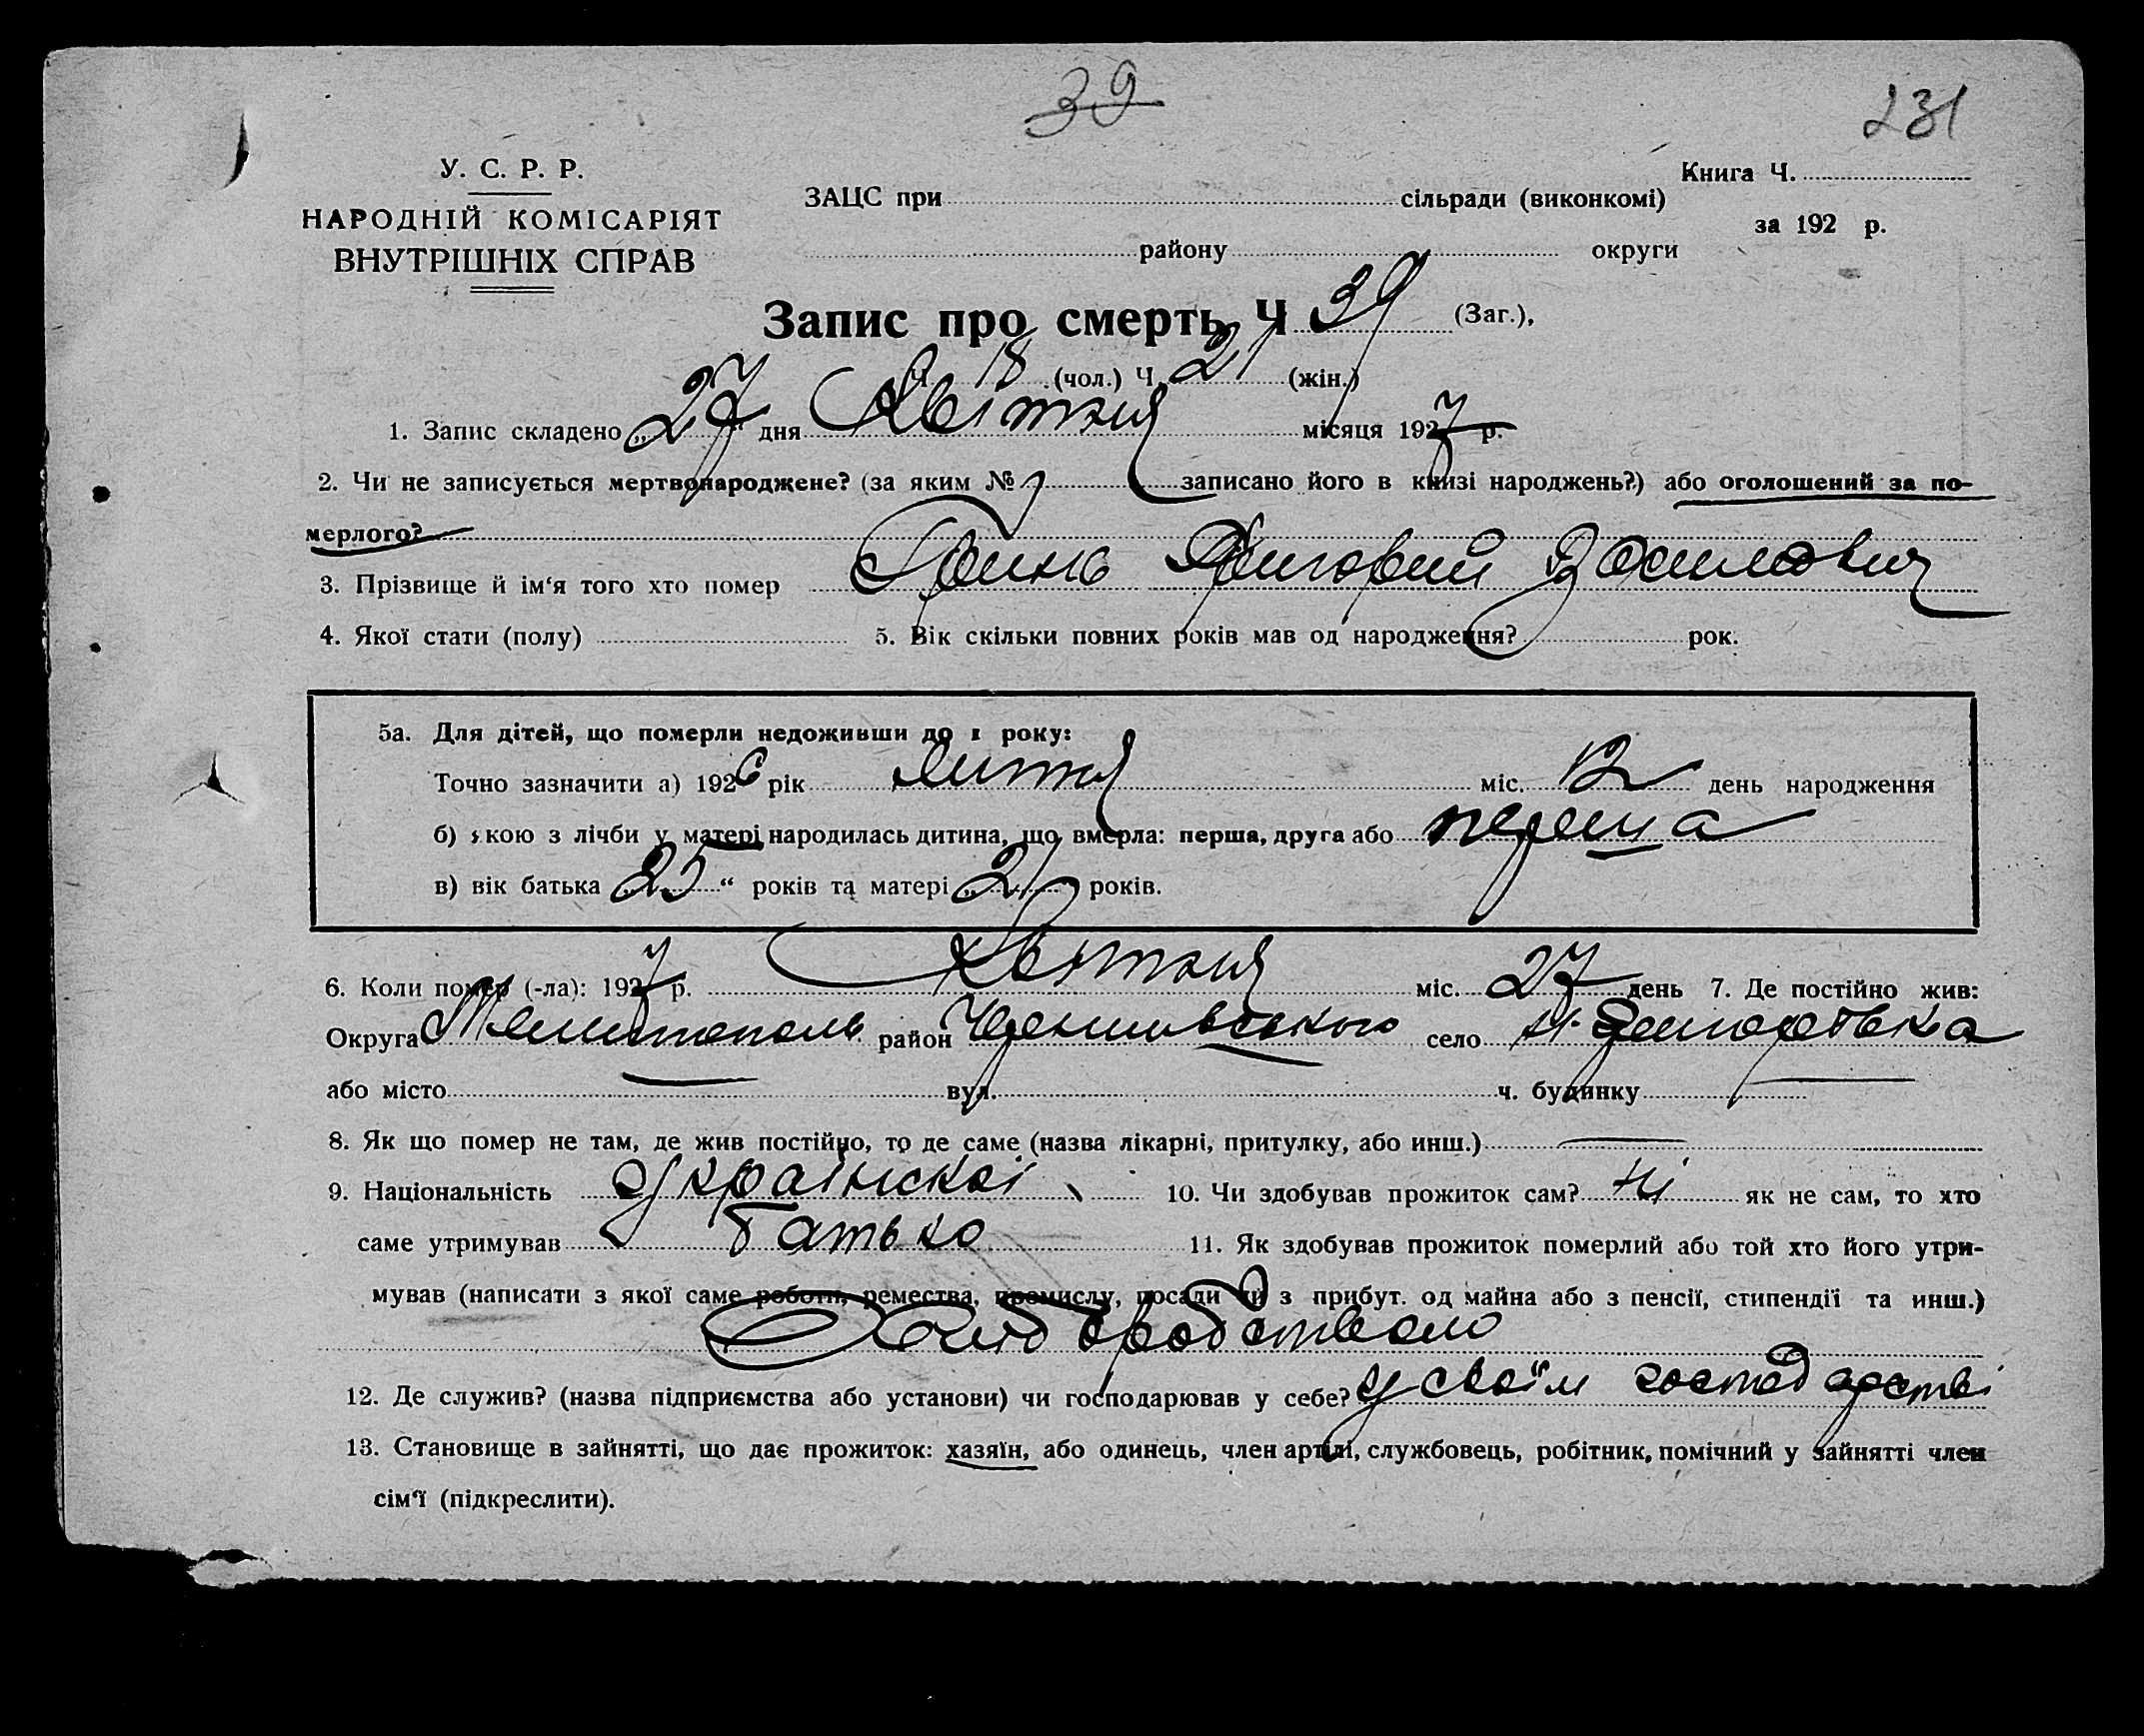 39
231
У. С. Р. Р.
НАРОДНІЙ КОМІСАРІЯТ
ВНУТРІШНІХ СПРАВ
ЗАЦС при сільради (виконкомі)
району округи
Книга Ч.
за 192 р.
Запис про смерть Ч 39 (Заг.),
Ч 18 (чол.) Ч 21 (жін.)
1. Запис складено „27 дня Квітня місяця 1927 р.
2. Чи не записується мертвонароджене? (за яким № записано його в книзі народжень?) або оголошений за по-
мерлого?
3. Прізвище й ім‘я того хто помер Гринь Григорий Василович
4. Якої стати (полу) 5. Вік скільки повних років мав од народження? рок.
5а. Для дітей, що померли недоживши до 1 року:
Точно зазначити а) 1926 рік липня міс. 12 день народження
б) якою з лічби у матері народилась дитина, що вмерла: перша, друга або перша
в) вік батька „25“ років та матері „21 років.
6. Коли помер (-ла): 1927 р. Квітня міс. 27 день 7. Де постійно жив:
Округа Мелітополь район село
або місто вул. ч. будинку
8. Як що помер не там, де жив постійно, то де саме (назва лікарні, притулку, або инш.)
9. Національність українскої 10. Чи здобував прожиток сам? ні як не сам, то хто
саме утримував батько 11. Як здобував прожиток померлий або той хто його утри-
мував (написати з якої саме роботи, ремества, промислу, посади чи з прибут. од майна або з пенсії, стипендії та инш.)
Хліборобством
12. Де служив? (назва підприємства або установи) чи господарював у себе? у своїм господарстві
13. Становище в зайнятті, що дає прожиток: хазяїн, або одинець, член артілі, службовець, робітник, помічний у зайнятті член
сім‘ї (підкреслити).